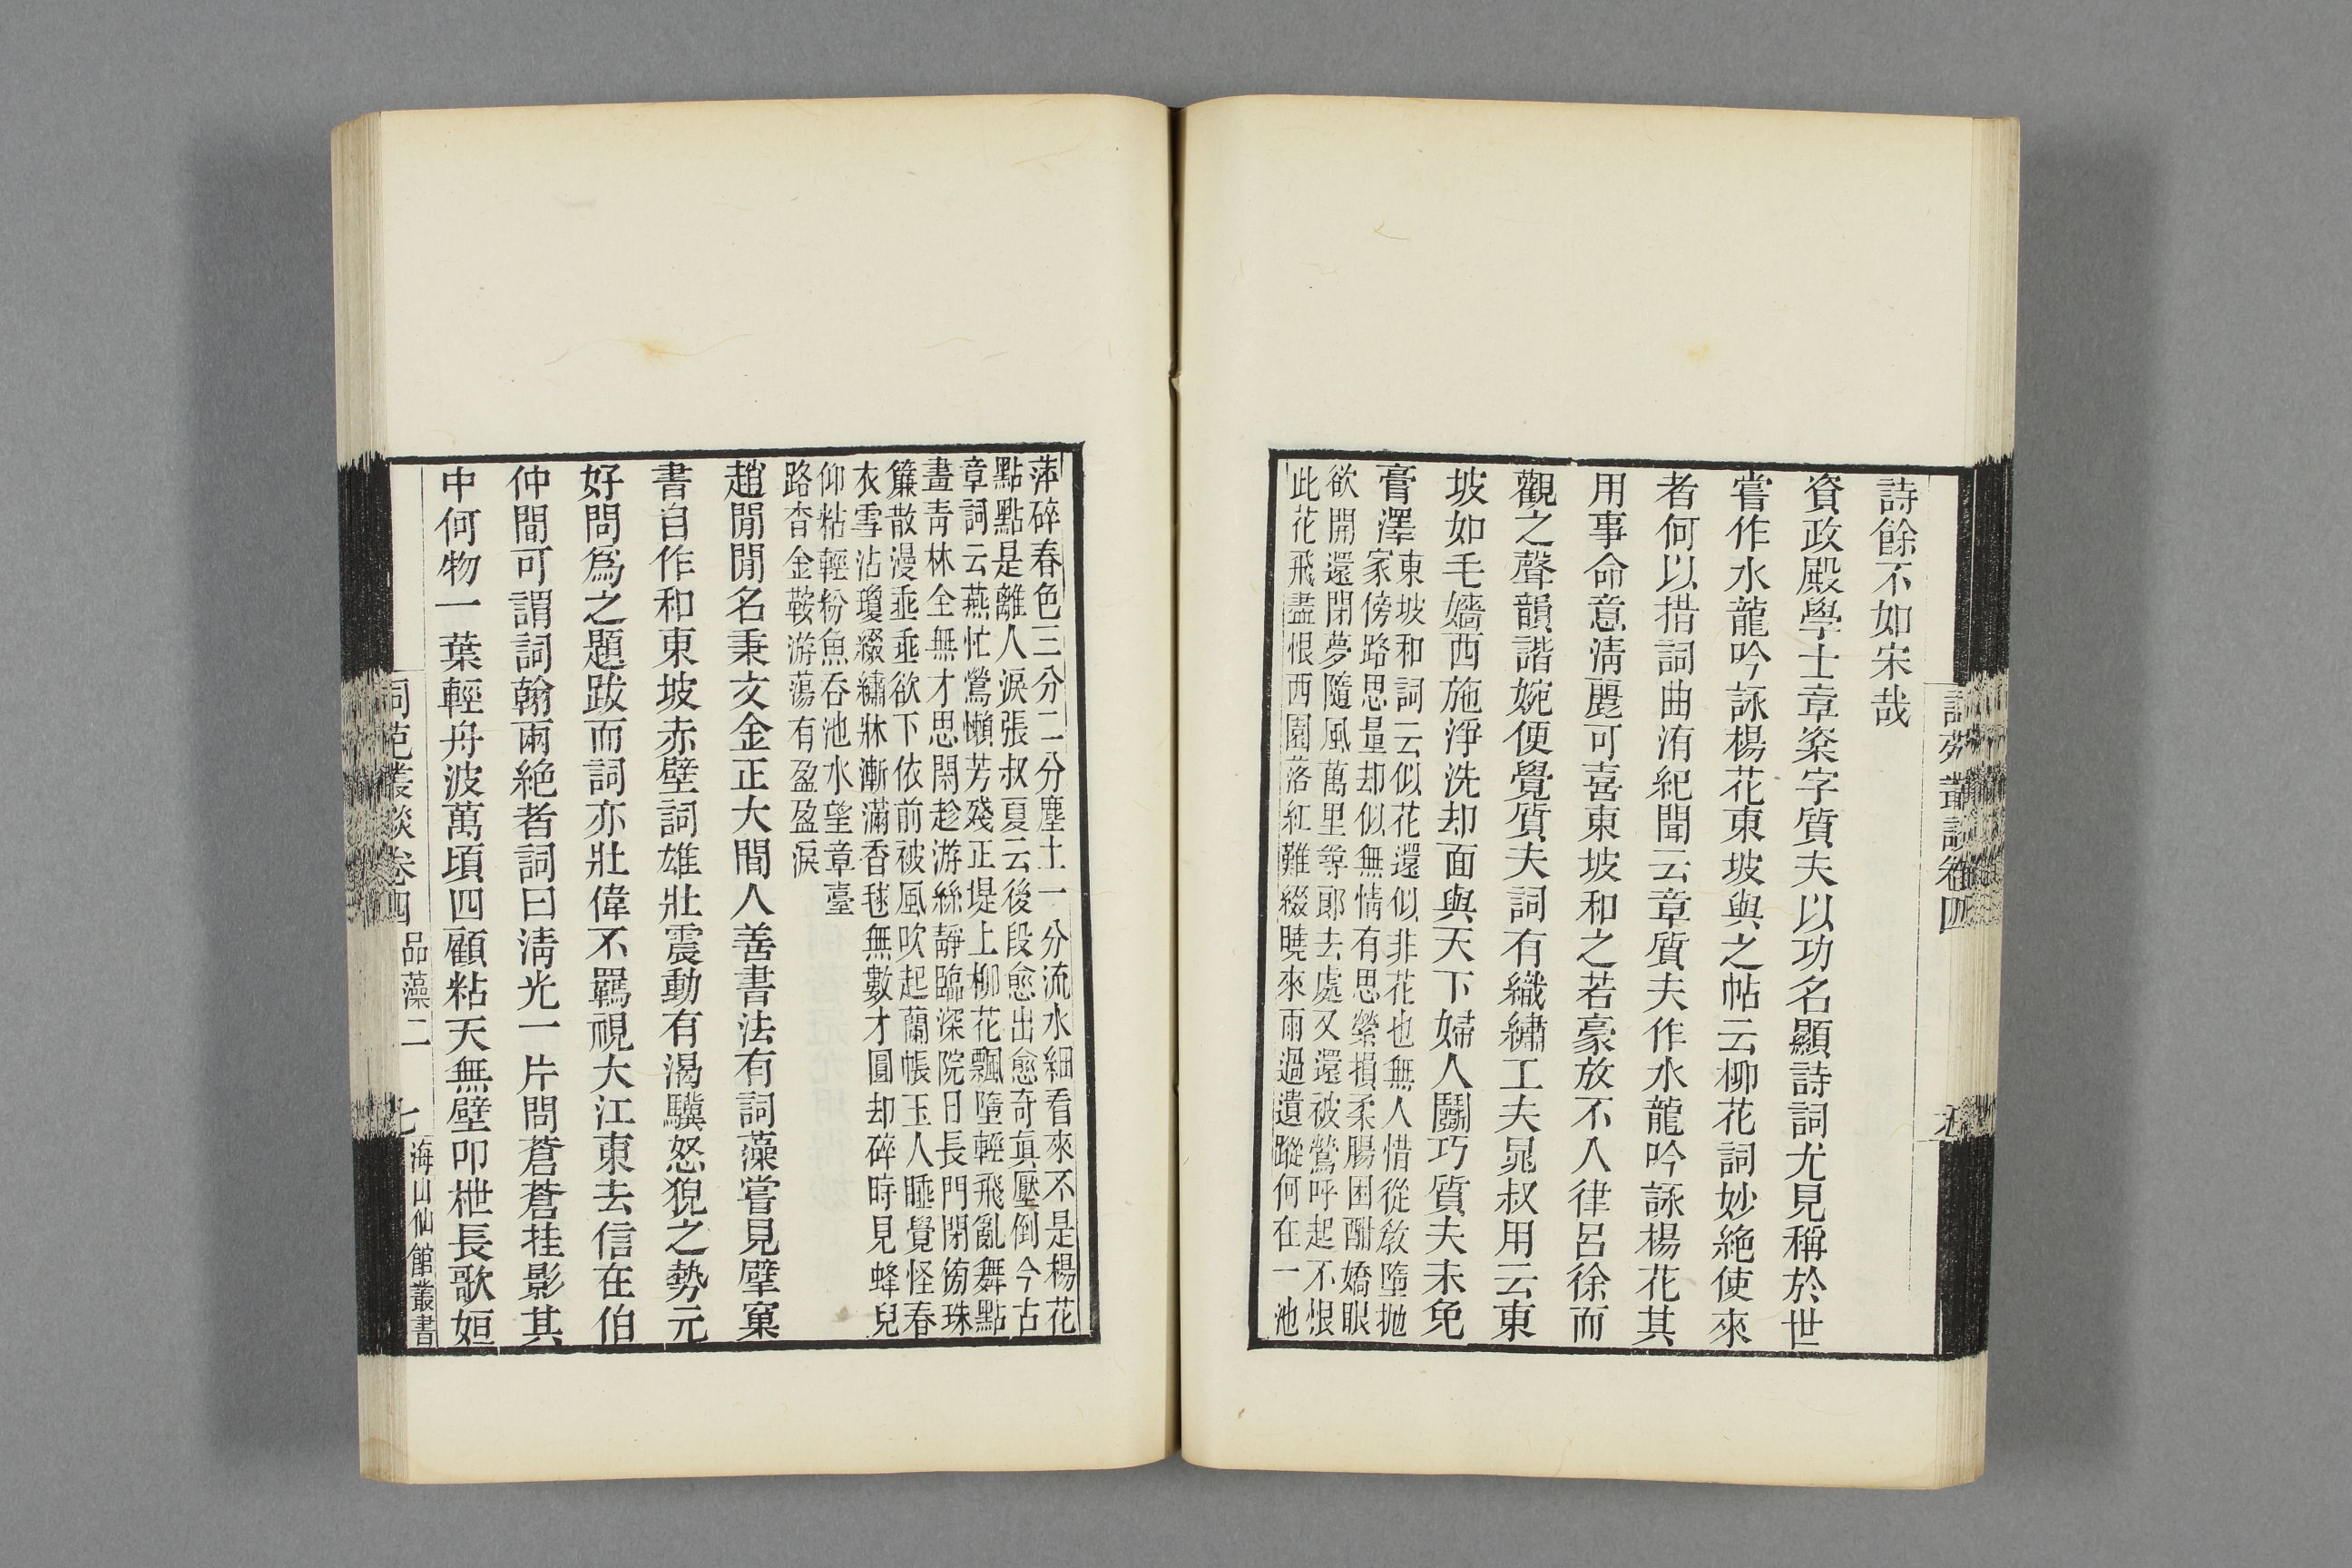 詩餘不如宋哉
資政殿學士章楶字質夫以功名顯詩詞尤見稱於世
嘗作水龍吟詠楊花東坡與之帖云柳花詞妙絶使來
者何以措詞曲洧紀聞云章質夫作水龍吟詠楊花其
用事命意淸麗可喜東坡和之若豪放不入律呂徐而
觀之聲韻諧婉便覺質夫詞有織繡工夫晁叔用云東
坡如毛嬙西施淨洗却面與天下婦人鬭巧質夫未免
膏澤
東坡和詞云似花還似非花也無人惜從敎墮抛
家傍路思量却似無情有思縈損柔腸困酣嬌眼
欲開還閉夢隨風萬里尋郞去處又還被鶯呼起不恨
此花飛盡恨西園落紅難綴曉來雨過遺蹤何在一池
萍碎春色三分二分塵土一分流水細看來不是楊花
點點是離人淚張叔夏云後段愈出愈奇眞壓倒今古
章詞云燕忙鶯懶芳殘正堤上柳花飄墮輕飛亂舞點
畫靑林全無才思閑趁游絲靜臨深院日長門閉傍珠
簾散漫垂垂欲下依前被風吹起蘭帳玉人睡覺怪春
衣雪沾瓊綴繡牀漸滿香毬無數才圓却碎時見蜂兒
仰粘輕粉魚吞池水望章臺
路杳金鞍游蕩有盈盈淚
趙閒閒名秉文金正大間人善書法有詞藻嘗見擘窠
書自作和東坡赤壁詞雄壯震動有渴驥怒猊之勢元
好問爲之題跋而詞亦壯偉不羈視大江東去信在伯
仲間可謂詞翰兩絶者詞曰淸光一片問蒼蒼挂影其
中何物一葉輕舟波萬頃四顧粘天無壁叩枻長歌姮
詞苑叢談卷四 品藻二 七 海山仙館叢書